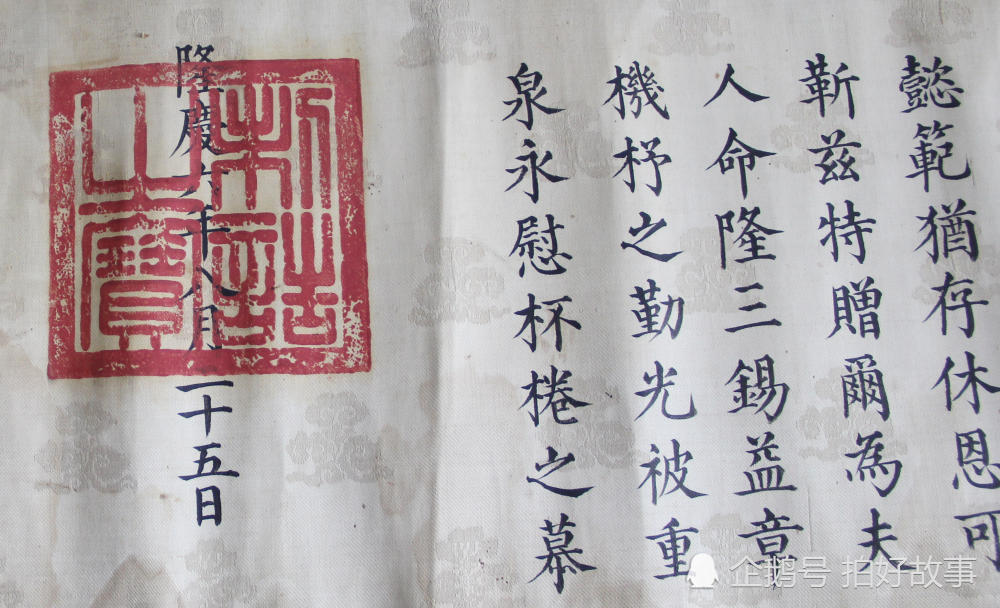 懿範猶存休恩可
靳兹特贈爾為夫
人命隆三錫益章
機杼之勤光被重
泉永慰杯棬之慕
隆慶六年八月二十五日
制誥之寶
企鹅号 拍好故事